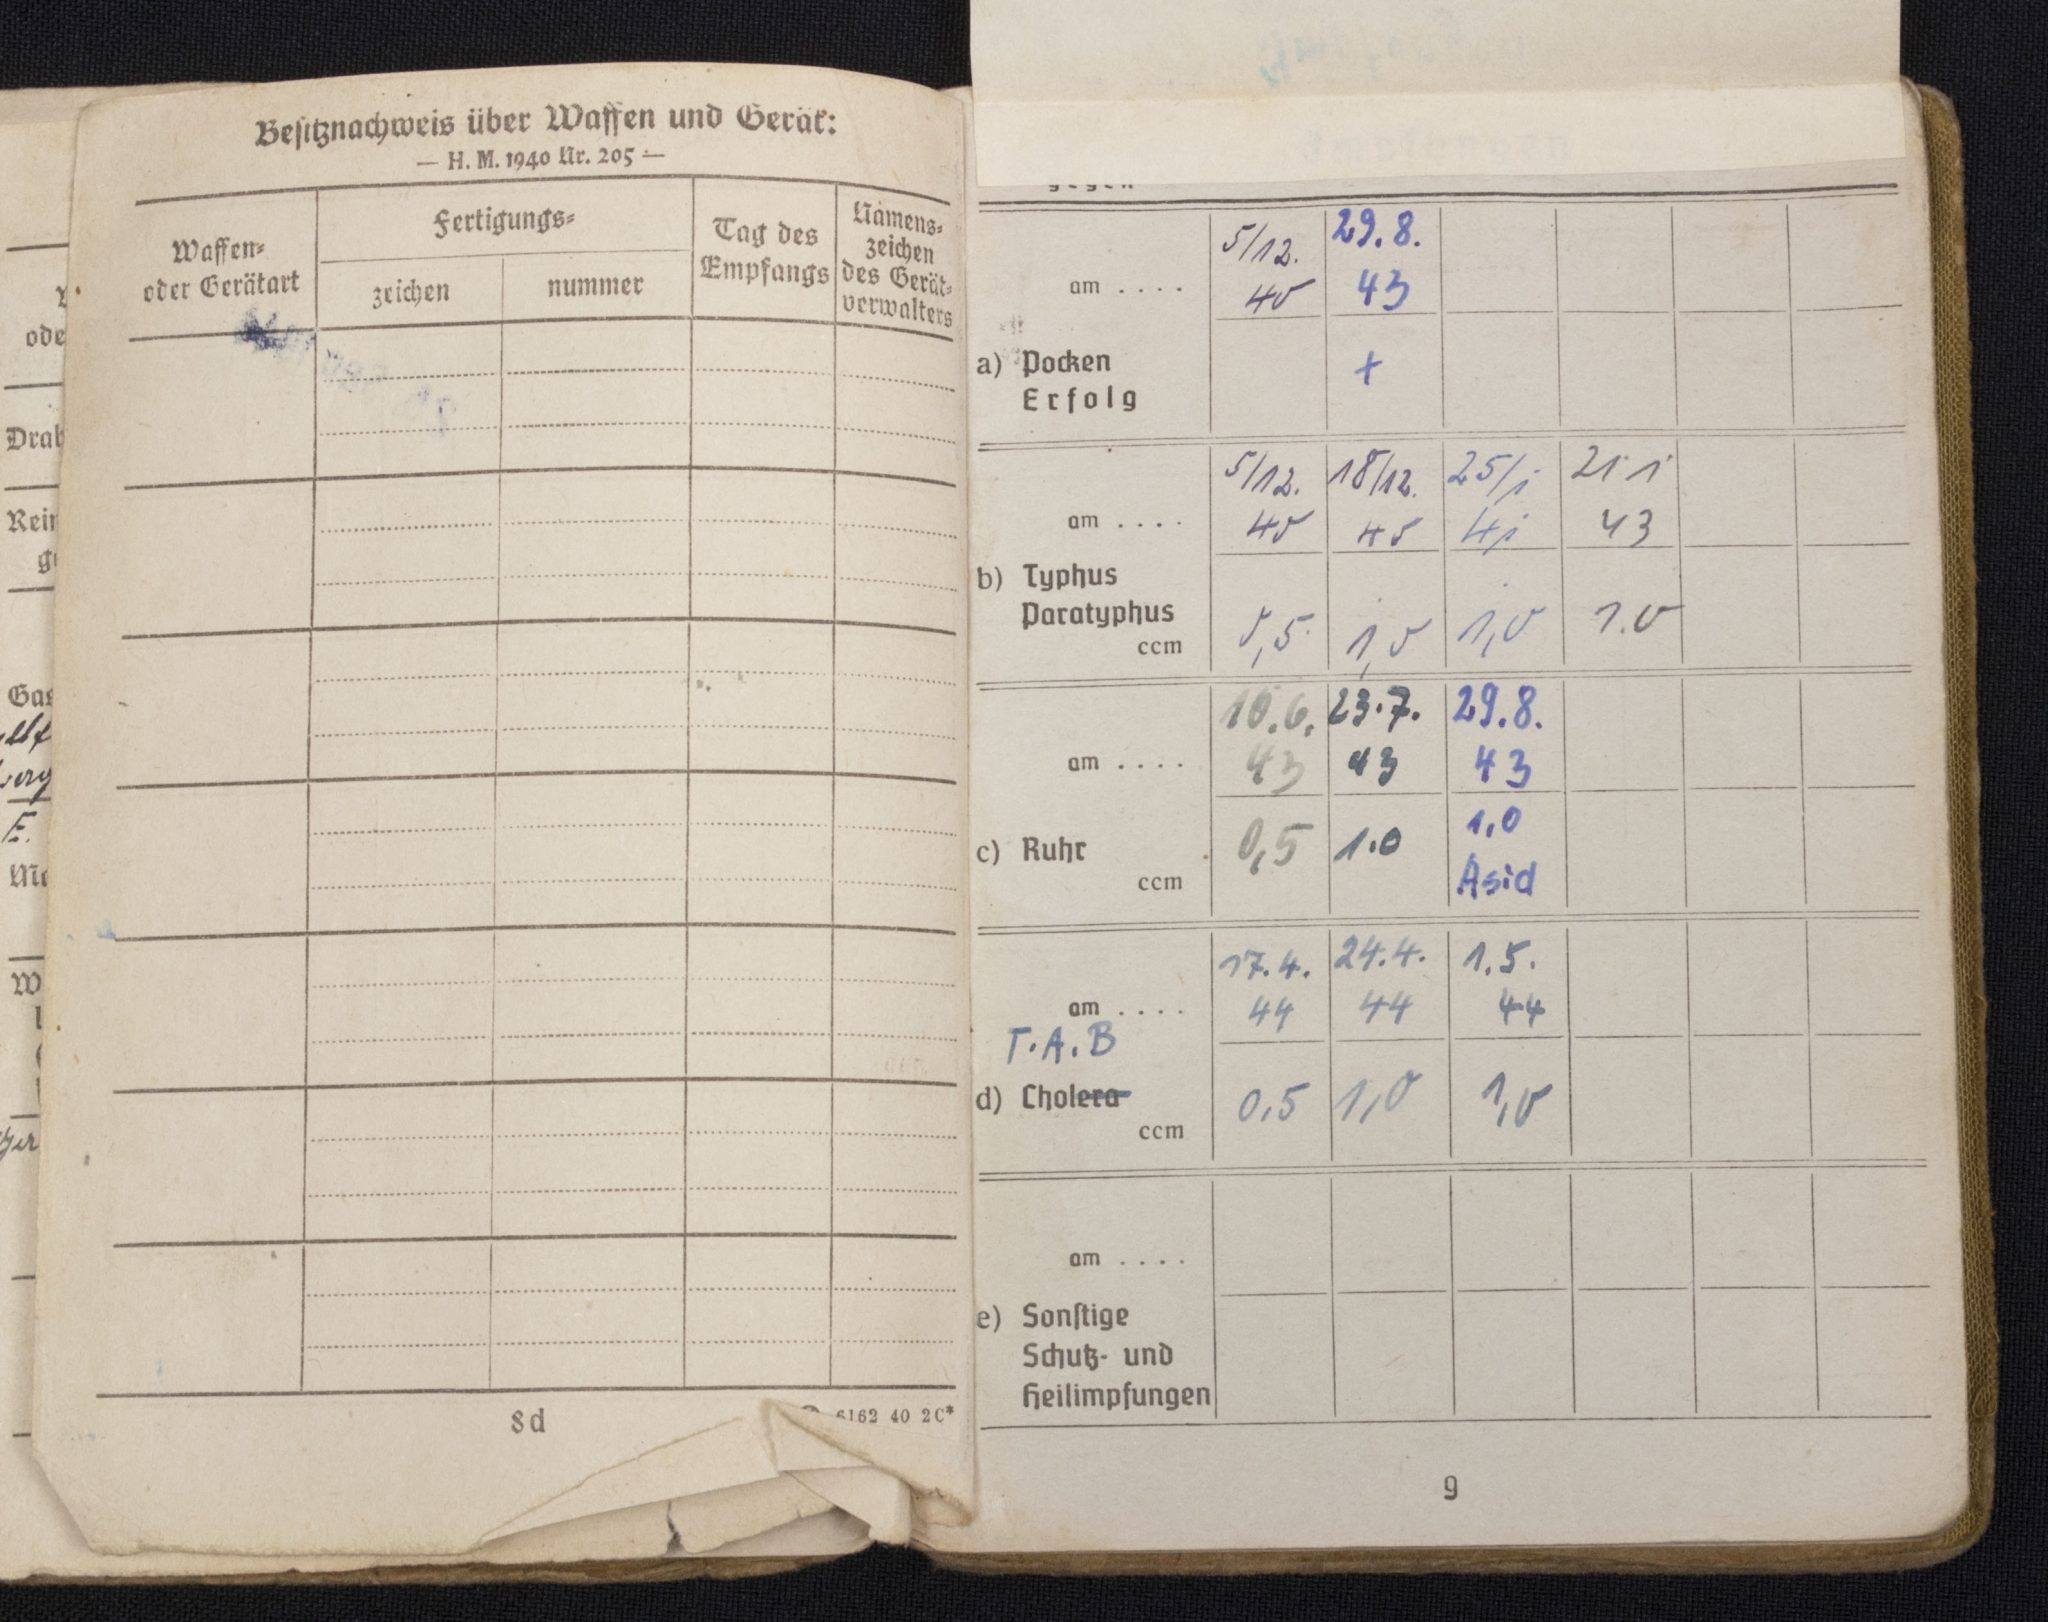 Besitznachweis über Waffen und Gerät:
— H. M. 1940 Nr. 205 —
Waffen-
oder Gerätart
Fertigungs-
zeichen
nummer
Tag des
Empfangs
Namens-
zeichen
des Gerät-
verwalters
8d
6162 40 2C*
gegen
am . . . .
5/12. 29.8.
40 43
a) Pocken
Erfolg
+
5/12. 18/12. 25/1 21 1
am . . . .
40 40 41 43
b) Typhus
Paratyphus
ccm
0,5 1,0 1,0 1.0
10.6. 23.7. 29.8.
am . . . .
43 43 43
c) Ruhr
ccm
0,5 1.0 1,0
Asid
17.4. 24.4. 1.5.
am . . . .
44 44 44
T.A.B
d) Cholera
ccm
0,5 1,0 1,0
am . . . .
e) Sonstige
Schutz- und
Heilimpfungen
9